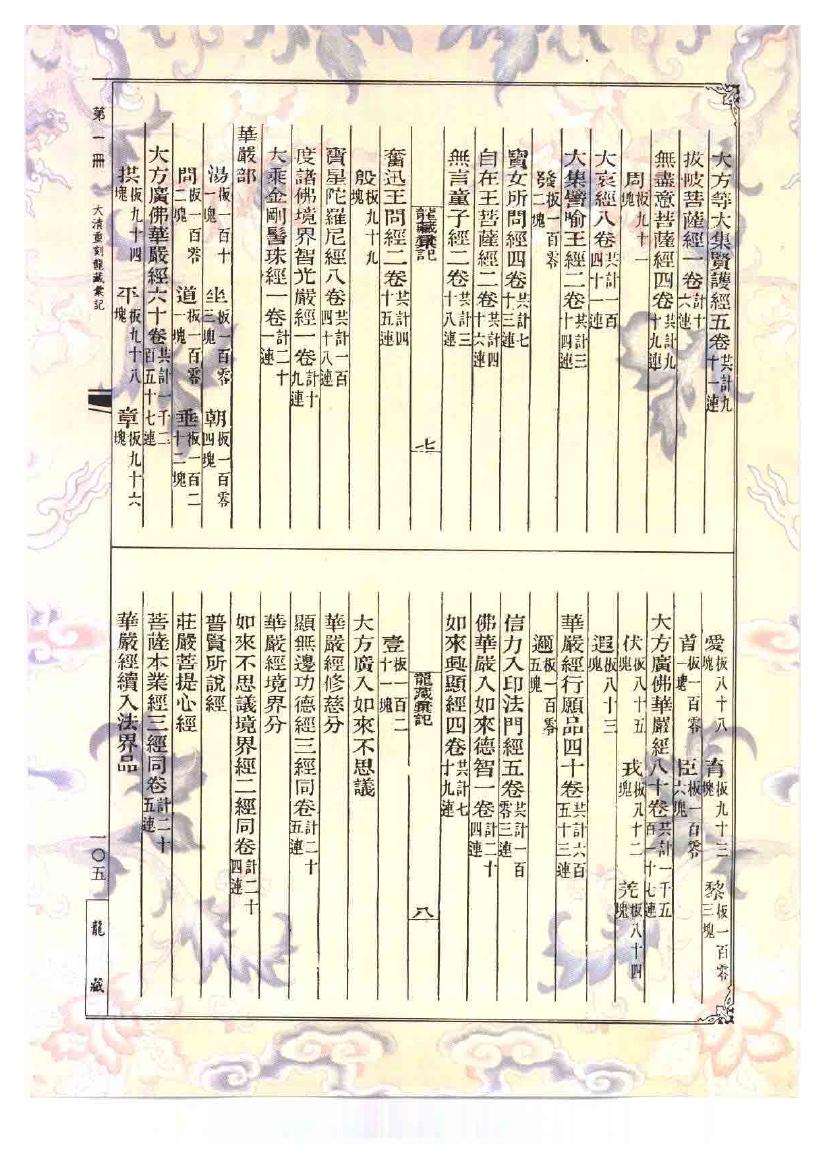 大方等大集賢護經五卷共計九十一連
拔陂菩薩經一卷計十六連
無盡意菩薩經四卷共計九十九連
周板九十一塊
大哀經八卷共計一百四十一連
大集譬喻王經二卷共計三十四連
發板一百零二塊
寶女所問經四卷共計七十三連
自在王菩薩經二卷共計四十六連
無言童子經二卷共計三十八連
龍藏彙記 七
奮迅王問經二卷共計四十五連
殷板九十九塊
寶星陀羅尼經八卷共計一百四十八連
度諸佛境界智光嚴經一卷計十九連
大乘金剛髻珠經一卷計二十一連
華嚴部
湯板一百十一塊 坐板一百零三塊 朝板一百零四塊
問板一百零二塊 道板一百零一塊 垂板一百二十二塊
大方廣佛華嚴經六十卷共計一千二百五十七連
拱板九十四塊 平板九十八塊 章板九十六塊
愛板八十八塊 育板九十三塊 黎板一百零三塊
首板一百零一塊 臣板一百零六塊
大方廣佛華嚴經八十卷共計一千五百一十七連
伏板八十五塊 戎板八十二塊 羌板八十四塊
遐板八十三塊
華嚴經行願品四十卷共計六百五十三連
邇板一百零五塊
信力入印法門經五卷共計一百零三連
佛華嚴入如來德智一卷計二十四連
如來興顯經四卷共計七十九連
龍藏彙記 八
壹板一百二十一塊
大方廣入如來不思議
華嚴經修慈分
顯無邊功德經三經同卷計二十五連
華嚴經境界分
如來不思議境界經二經同卷計二十四連
普賢所說經
莊嚴菩提心經
菩薩本業經三經同卷計二十五連
華嚴經續入法界品
第一冊 大清重刻龍藏彙記 一〇五 龍藏